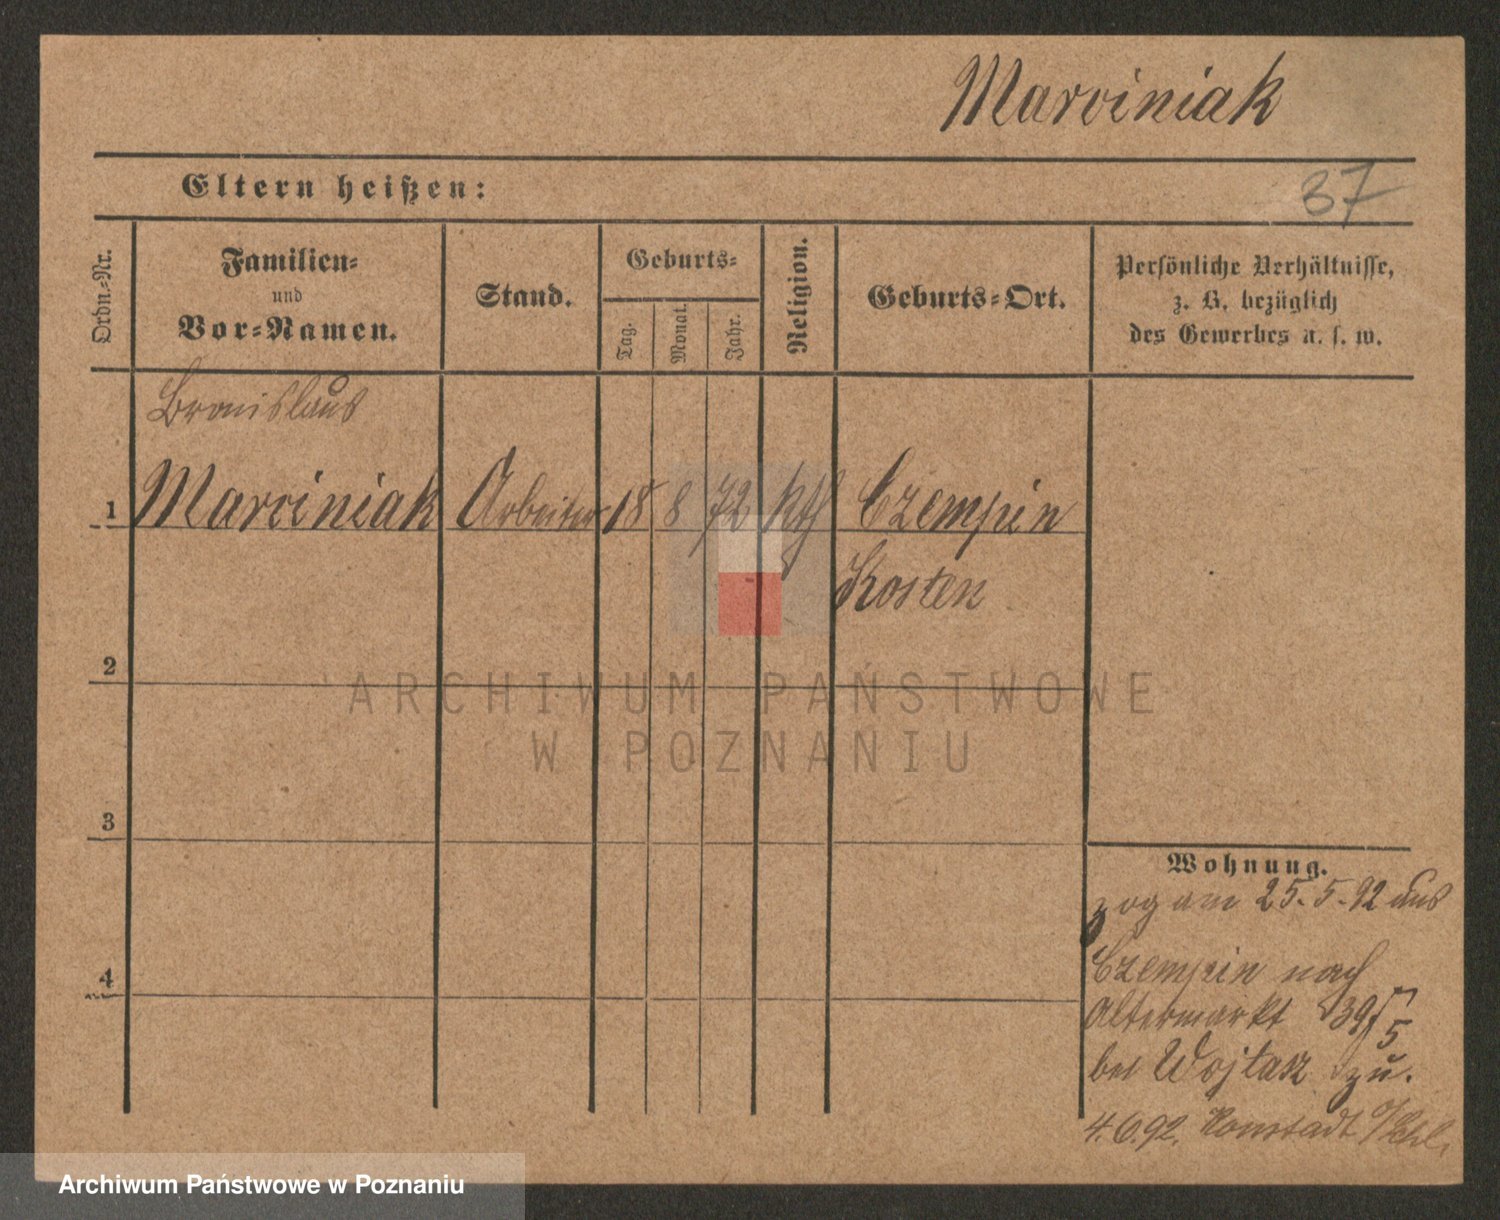 Marciniak
Eltern heißen:
37
Ordn.-Nr.
Familien-
und
Vor-Namen.
Stand.
Geburts-
Tag.
Monat.
Jahr.
Religion.
Geburts-Ort.
Persönliche Verhältnisse,
z. B. bezüglich
des Gewerbes u. s. w.
Bronislaus
1 Marciniak Arbeiter 18 8 72 kth Czempin
Kosten
2
ARCHIWUM PAŃSTWOWE
W POZNANIU
3
Wohnung.
zog am 25.5.92 aus
4
Czempin nach
Altermarkt 39
bei Wojtasz zu.
4.6.92.
Archiwum Państwowe w Poznaniu